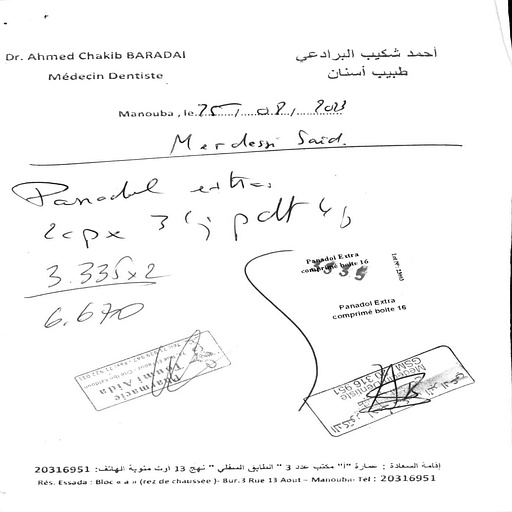 Dr. Ahmed Chakib BARADAI
Médecin Dentiste
أحمد شكيب البرادعي
طبيب أسنان
Manouba , le 25/08/2023
Merdessi Said.
Panadol extra
2cp x 3 /j pdt 4j
3.335 x 2
6.670
Panadol Extra
comprimé boite 16
3335
Panadol Extra
comprimé boite 16
Pharmacie
Aida
Médecin Dentiste
GSM 20 316 951
إقامة السعادة : عمارة "أ" مكتب عدد 3 " الطابق السفلي " نهج 13 اوت منوبة الهاتف: 20316951
Rés. Essada : Bloc « a » (rez de chaussée )- Bur.3 Rue 13 Aout – Manouba- Tél : 20316951